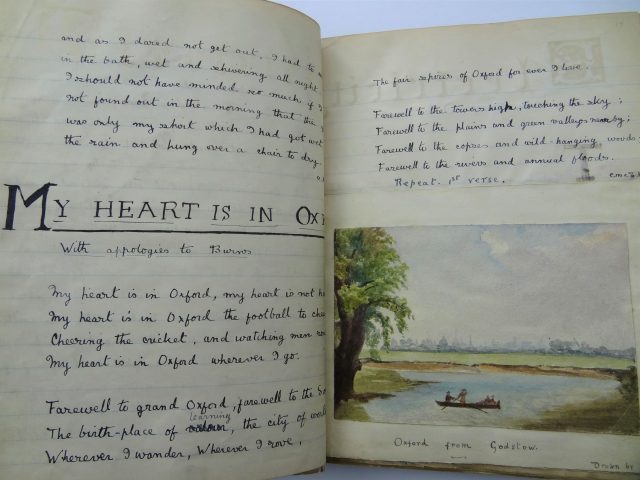 and as I dared not get out, I had to
in the bath, wet and schivering all night
I should not have minded so much, if I
not found out in the morning that the
was only my short which I had got wet
the rain and hung over a chair to dry.
MY HEART IS IN OX
With appologies to Burns
My heart is in Oxford, my heart is not he
My heart is in Oxford the football to che
Cheering the cricket, and watching men ro
My heart is in Oxford wherever I go.
Farewell to grand Oxford, farewell to the
learning
The birth-place of, the city of
Wherever I wander, Wherever I rove,
The fair spires of Oxford for ever I love.
Farewell to the towers high, touching the sky;
Farewell to the plains and green valleys nearby;
Farewell to the copses and wild-hanging woods
Farewell to the rivers and annual floods.
Repeat. 1st verse.
Oxford from Godstow.
Drawn by